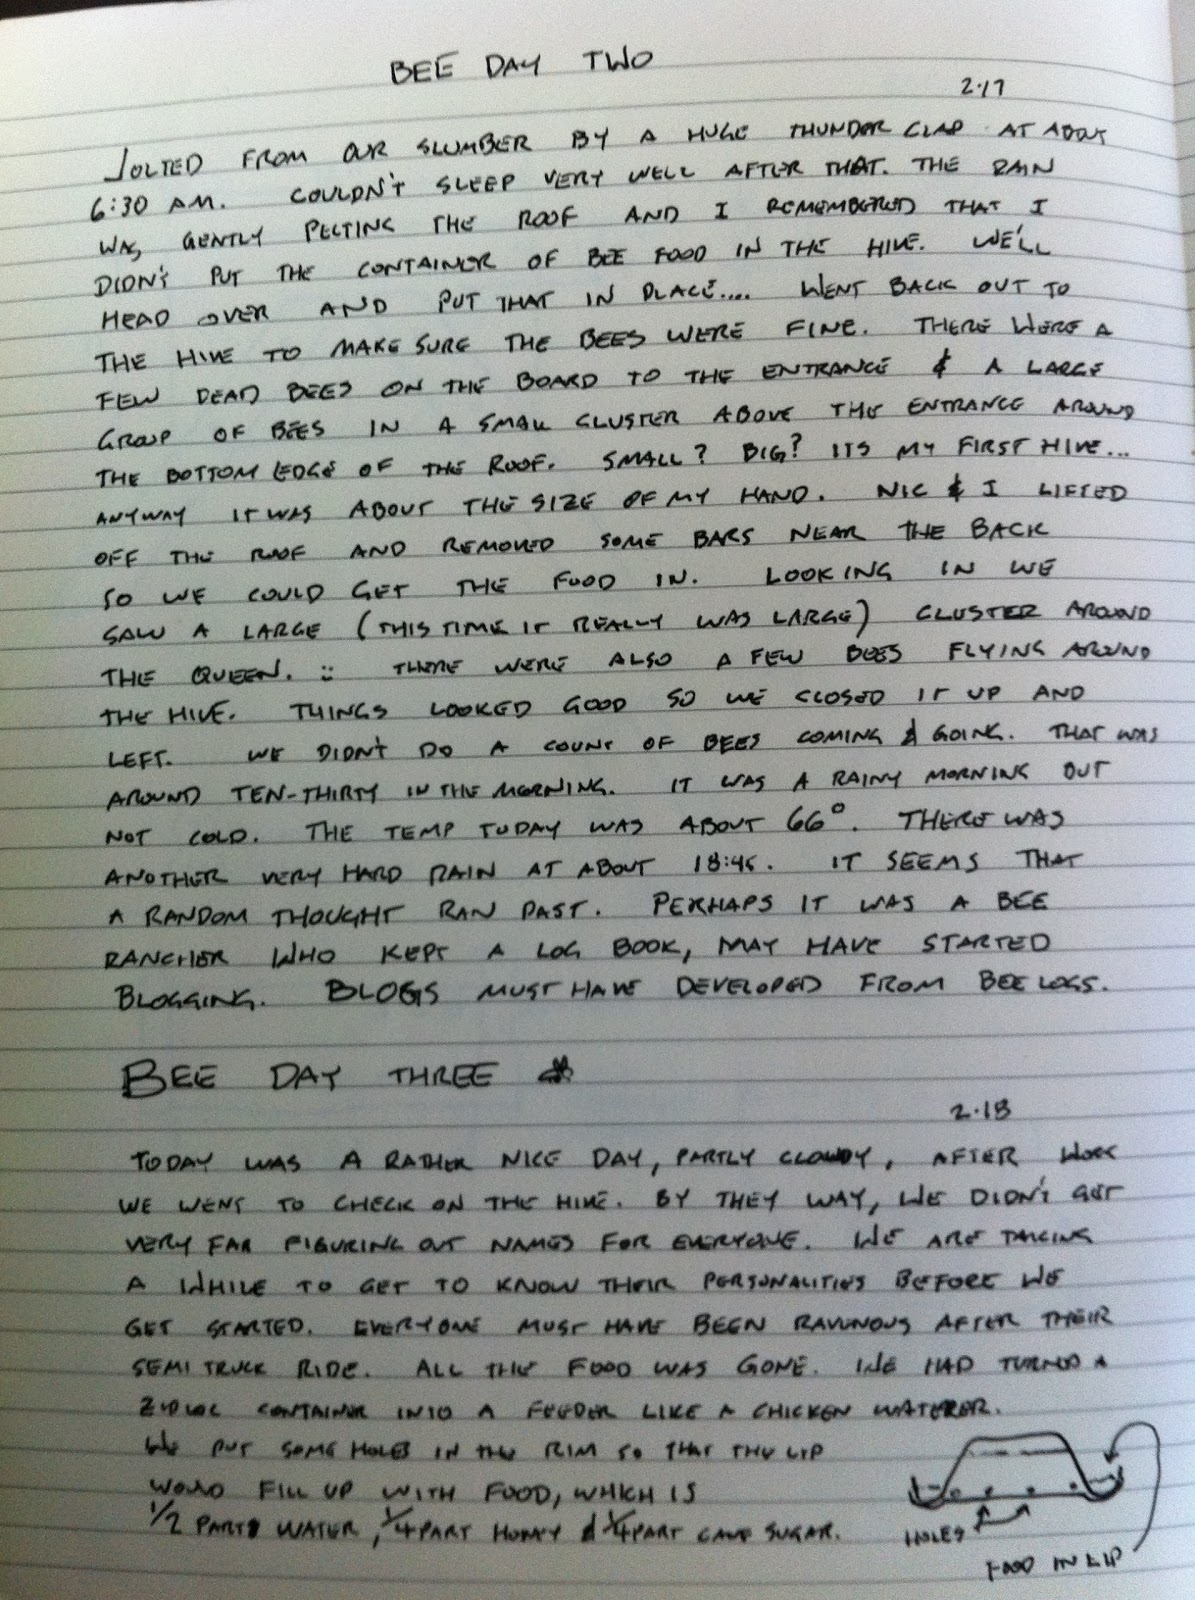 BEE DAY TWO
2.17
JOLTED FROM OUR SLUMBER BY A HUGE THUNDER CLAP AT ABOUT
6:30 AM. COULDN'T SLEEP VERY WELL AFTER THAT. THE RAIN
WAS GENTLY PELTING THE ROOF AND I REMEMBERED THAT I
DIDN'T PUT THE CONTAINER OF BEE FOOD IN THE HIVE. WE'LL
HEAD OVER AND PUT THAT IN PLACE.... WENT BACK OUT TO
THE HIVE TO MAKE SURE THE BEES WERE FINE. THERE WERE A
FEW DEAD BEES ON THE BOARD TO THE ENTRANCE & A LARGE
GROUP OF BEES IN A SMALL CLUSTER ABOVE THE ENTRANCE AROUND
THE BOTTOM EDGE OF THE ROOF. SMALL? BIG? ITS MY FIRST HIVE...
ANYWAY IT WAS ABOUT THE SIZE OF MY HAND. NIC & I LIFTED
OFF THE ROOF AND REMOVED SOME BARS NEAR THE BACK
SO WE COULD GET THE FOOD IN. LOOKING IN WE
SAW A LARGE (THIS TIME IT REALLY WAS LARGE) CLUSTER AROUND
THE QUEEN. THERE WERE ALSO A FEW BEES FLYING AROUND
THE HIVE. THINGS LOOKED GOOD SO WE CLOSED IT UP AND
LEFT. WE DIDN'T DO A COUNT OF BEES COMING & GOING. THAT WAS
AROUND TEN-THIRTY IN THE MORNING. IT WAS A RAINY MORNING BUT
NOT COLD. THE TEMP TODAY WAS ABOUT 66°. THERE WAS
ANOTHER VERY HARD RAIN AT ABOUT 18:45. IT SEEMS THAT
A RANDOM THOUGHT RAN PAST. PERHAPS IT WAS A BEE
RANCHER WHO KEPT A LOG BOOK, MAY HAVE STARTED
BLOGGING. BLOGS MUST HAVE DEVELOPED FROM BEE LOGS.
BEE DAY THREE
2.18
TODAY WAS A RATHER NICE DAY, PARTLY CLOUDY, AFTER WORK
WE WENT TO CHECK ON THE HIVE. BY THEY WAY, WE DIDN'T GET
VERY FAR FIGURING OUT NAMES FOR EVERYONE. WE ARE TAKING
A WHILE TO GET TO KNOW THEIR PERSONALITIES BEFORE WE
GET STARTED. EVERYONE MUST HAVE BEEN RAVUNOUS AFTER THEIR
SEMI TRUCK RIDE. ALL THE FOOD WAS GONE. WE HAD TURNED A
ZIPLOC CONTAINER INTO A FEEDER LIKE A CHICKEN WATERER.
WE PUT SOME HOLES IN THE RIM SO THAT THE LIP
WOULD FILL UP WITH FOOD, WHICH IS
1/2 PARTS WATER, 1/4 PART HONEY & 1/4 PART CANE SUGAR.
HOLES
FOOD IN LIP